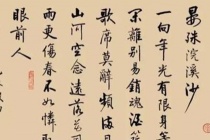 晏殊浣溪沙
一向年光有限身等
閑離別易銷魂酒
歌席莫辭頻滿
山河空念遠落花
雨更傷春不如憐
眼前人